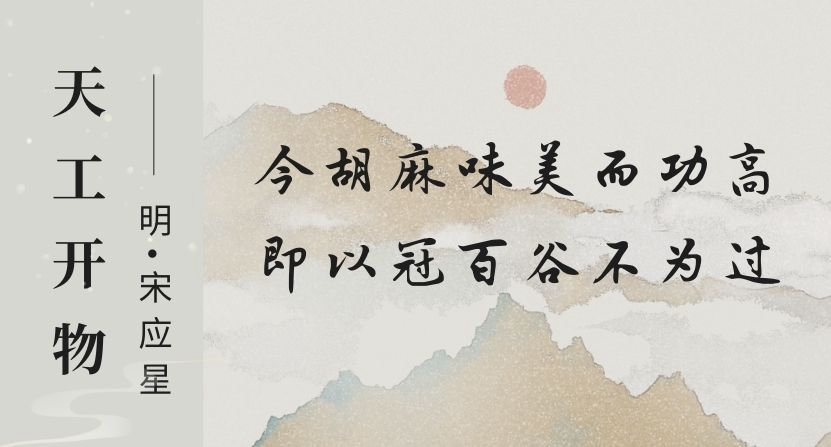 天工开物
——明·宋应星
今胡麻味美而功高
即以冠百谷不为过